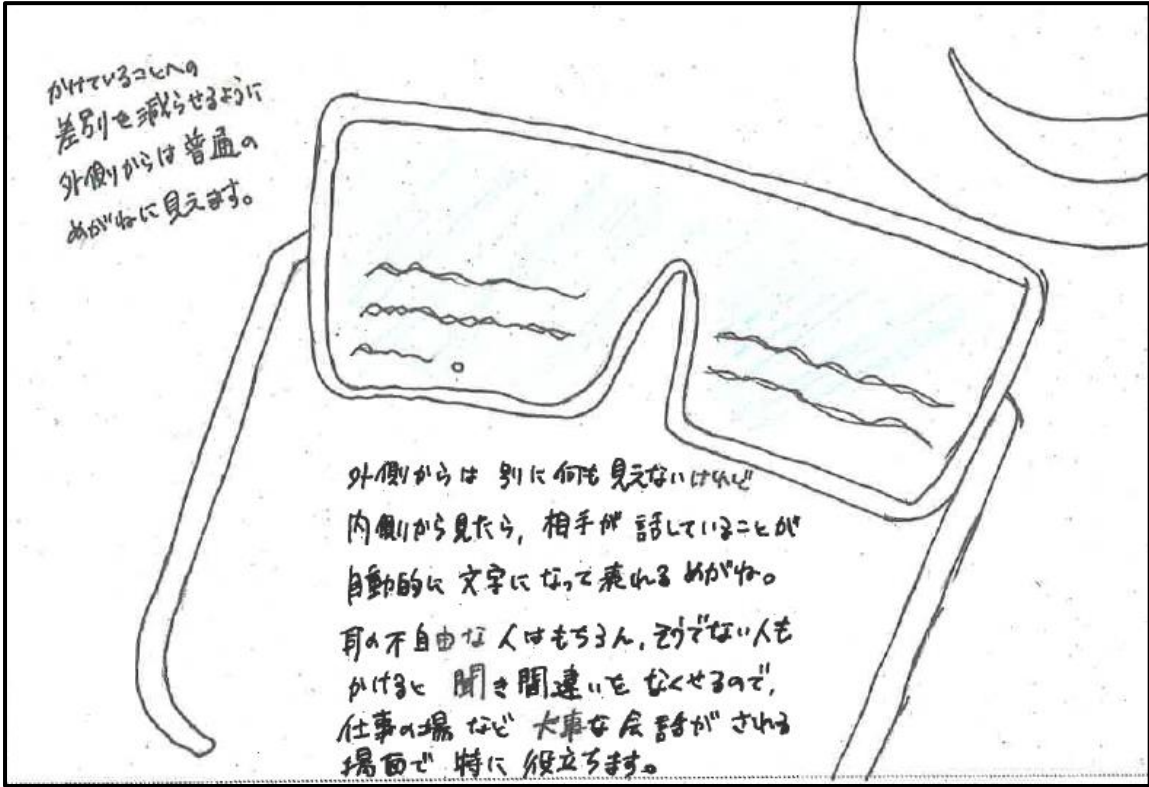 かけていることへの
差別を減らせるように
外側からは普通の
めがねに見えます。
外側からは別に何も見えないけれど
内側から見たら、相手が話していることが
自動的に文字になって表れるめがね。
耳の不自由な人はもちろん、そうでない人も
かけると聞き間違いをなくせるので、
仕事の場など大事な会話がされる
場面で特に役立ちます。